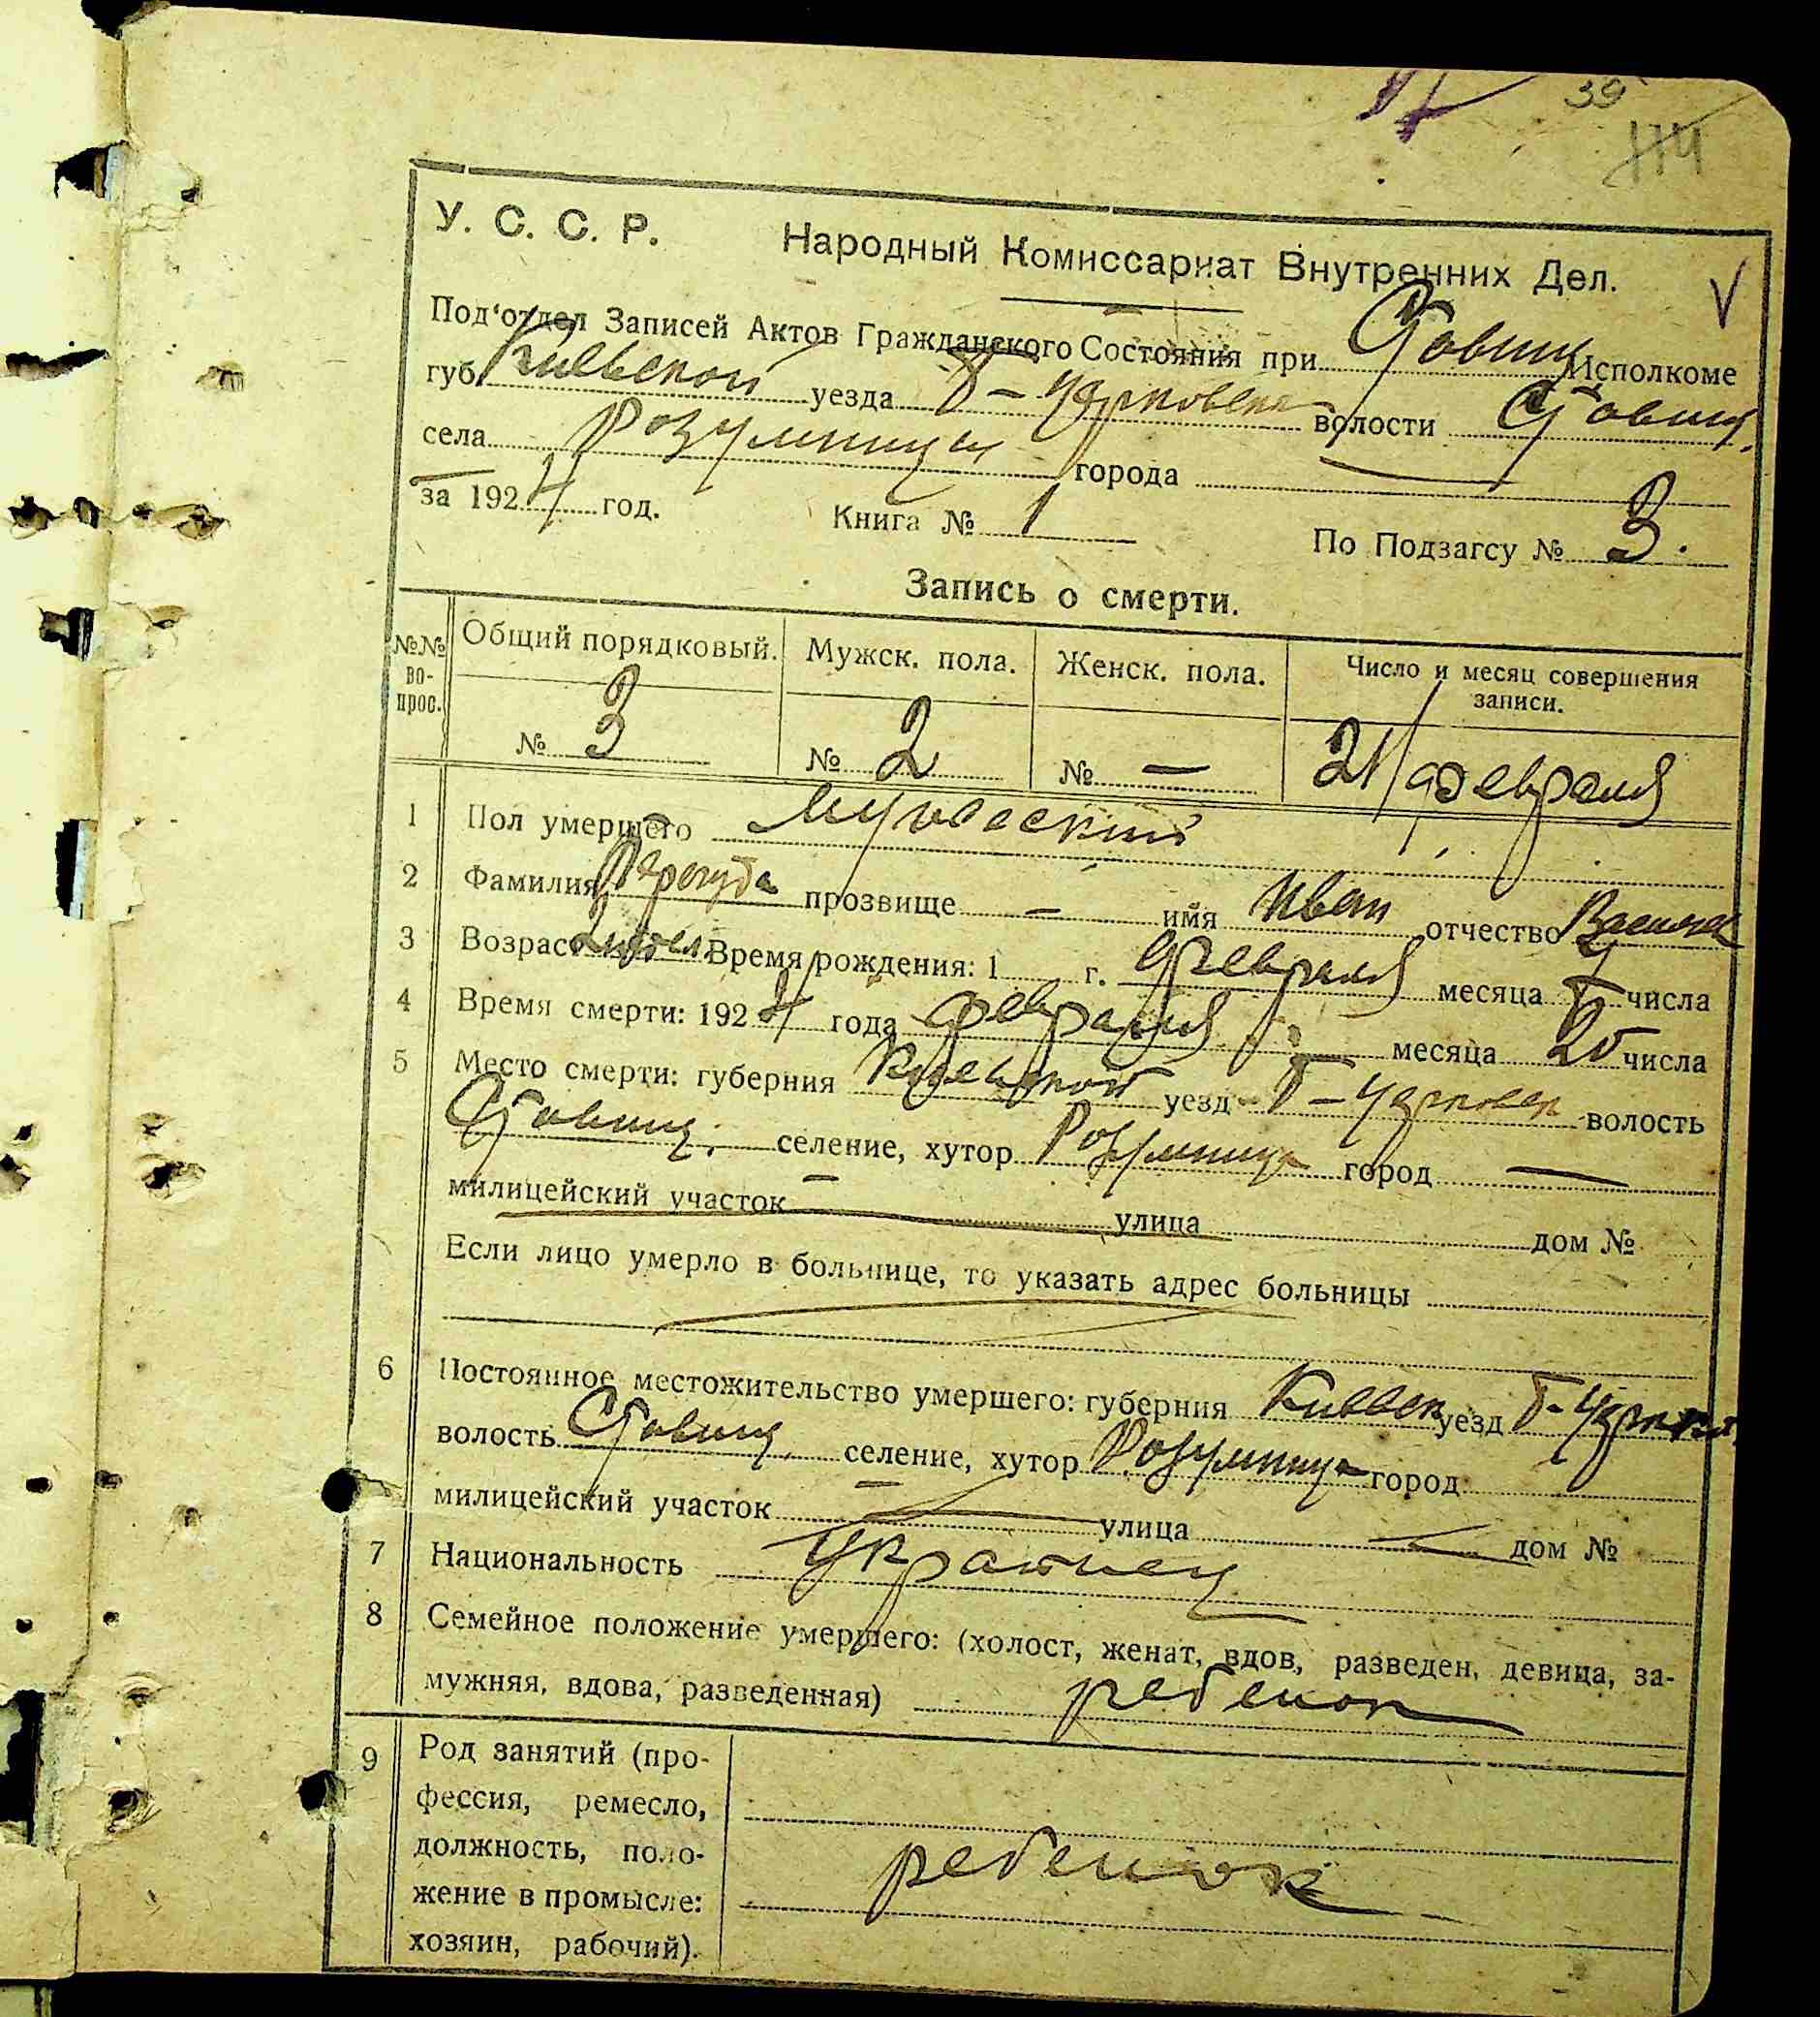 39
114
У. С. С. Р. Народный Комиссариат Внутренних Дел.
Под'отдел Записей Актов Гражданского Состояния при Ставищ Исполкоме
губ. Киевской уезда Б-Церковска волости Ставищ.
села Розумницы города —
за 1924 год. Книга № 1 По Подзагсу № 3.
Запись о смерти.
№№ во-прос. Общий порядковый. Мужск. пола. Женск. пола. Число и месяц совершения записи.
№ 3 № 2 № — 21/февраля
1 Пол умершего мужеский
2 Фамилия прозвище — имя Иван отчество
3 Возраст 2 недел. Время рождения: 1 г. февраля месяца числа
4 Время смерти: 1924 года февраля месяца 20 числа
5 Место смерти: губерния Киевской уезд Б-Церковск волость
Ставищ. селение, хутор Розумница город —
милицейский участок — улица дом №
Если лицо умерло в больнице, то указать адрес больницы
6 Постоянное местожительство умершего: губерния Киевск уезд Б-Церков.
волость Ставищ. селение, хутор Розумница город
милицейский участок — улица — дом №
7 Национальность украинец
8 Семейное положение умершего: (холост, женат, вдов, разведен, девица, за-
мужняя, вдова, разведенная) ребенок
9 Род занятий (про-
фессия, ремесло,
должность, поло-
жение в промысле:
хозяин, рабочий).
ребенок